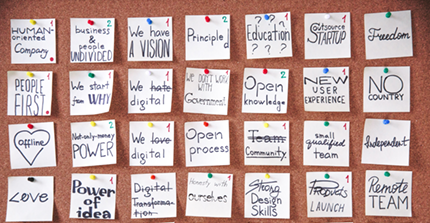 HUMAN-
oriented
Company.
1
business
&
people
UNDIVIDED
2
We have
A VISION
Principled
2
Education
? ? ?
Outsource
STARTUP
1
Freedom
PEOPLE
FIRST.
1
We start
from WHY
2
We hate
digital
WE DON'T WORK
WITH
Government
1
Open
knowledge
2
NEW
USER
EXPERIENCE
NO
COUNTRY
Offline
1
Not-only-money
POWER
2
We love
digital
1
Open
process
Team
Community
1
small
qualified
team
1
Independent
Love
Power of
idea
1
Digital
Transforma-
tion
1
Honesty with
ourselves
Strong
Design
Skills
1
LAUNCH
1
Remote
TEAM